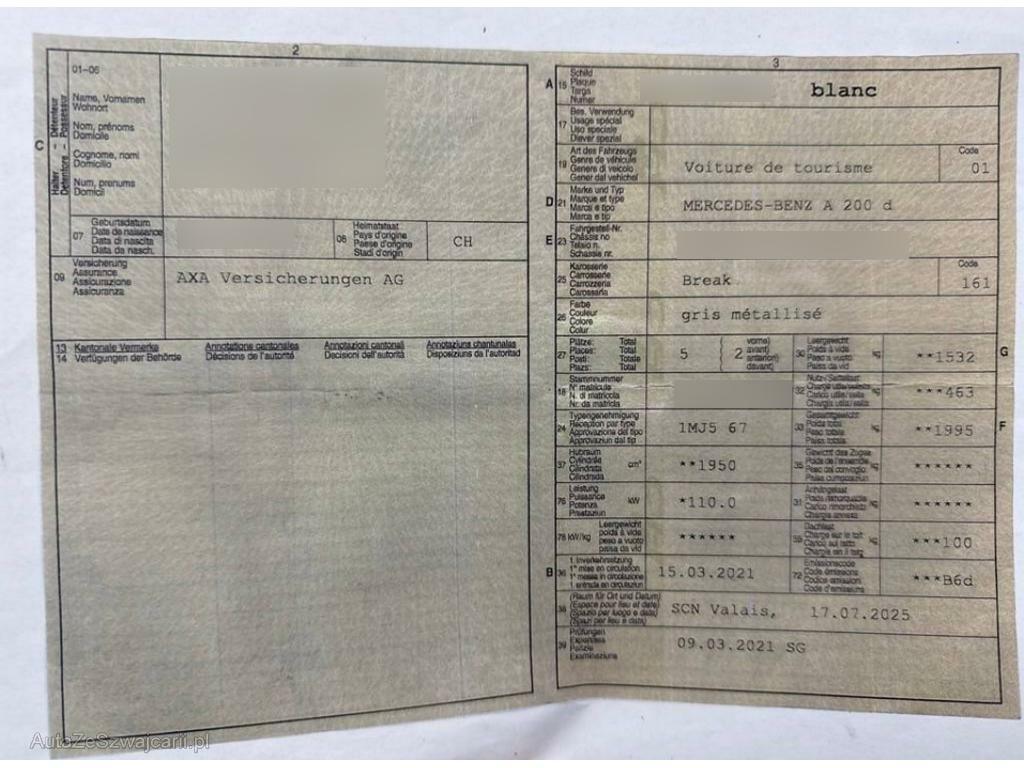 2
01–06
Name, Vornamen
Wohnort
Nom, prénoms
Domicile
Cognome, nomi
Domicilio
Num, prenums
Domicil
Halter – Détenteur
Detentore – Possessur
C
07
Geburtsdatum
Date de naissance
Data di nascita
Data da nasch.
08
Heimatstaat
Pays d'origine
Paese d'origine
Stadi d'origin
CH
09
Versicherung
Assurance
Assicurazione
Assicuranza
AXA Versicherungen AG
13 Kantonale Vermerke Annotations cantonales Annotazioni cantonali Annotaziuns chantunalas
14 Verfügungen der Behörde Décisions de l'autorité Decisioni dell'autorità Disposiziuns da l'autoritad
3
A 15
Schild
Plaque
Targa
Numer
blanc
17
Bes. Verwendung
Usage spécial
Uso speciale
Diever spezial
19
Art des Fahrzeugs
Genre de véhicule
Genere di veicolo
Gener dal vehichel
Voiture de tourisme
Code
01
D 21
Marke und Typ
Marque et type
Marca e tipo
Marca e tip
MERCEDES-BENZ A 200 d
E 23
Fahrgestell-Nr.
Châssis no
Telaio n.
Schassis nr.
25
Karosserie
Carrosserie
Carrozzeria
Carossaria
Break
Code
161
26
Farbe
Couleur
Colore
Colur
gris métallisé
27
Plätze: Total
Places: Total
Posti: Totale
Plazs: Total
5
2
vorne)
avant)
anteriori)
davant)
30
Leergewicht
Poids à vide
Peso a vuoto
Paisa da vid
kg
**1532
G
18
Stammnummer
N° matricule
N. di matricola
Nr. da matricla
32
Nutz-/Sattellast
Charge utile/sellette
Carico utile/sella
Chargia utila/sella
kg
***463
24
Typengenehmigung
Réception par type
Approvazione del tipo
Approvaziun dal tip
1MJ5 67
33
Gesamtgewicht
Poids total
Peso totale
Paisa totala
kg
**1995
F
37
Hubraum
Cylindrée
Cilindrata
Cilindrada
cm³
**1950
35
Gewicht des Zuges
Poids de l'ensemble
Peso del convoglio
Paisa cumposiziun
kg
******
76
Leistung
Puissance
Potenza
Prestaziun
kW
*110.0
31
Anhängelast
Poids remorquable
Carico rimorchiato
Chargia annexa
kg
******
78 kW/kg
Leergewicht
poids à vide
peso a vuoto
paisa da vid
******
55
Dachlast
Charge sur le toit
Carico sul tetto
Chargia sin il tetg
kg
***100
B 36
1. Inverkehrsetzung
1re mise en circulation
1a messa in circolazione
1. entrada en circulaziun
15.03.2021
72
Emissionscode
Code émissions
Codice emissioni
Code d'emissiuns
***B6d
38
(Raum für Ort und Datum)
(Espace pour lieu et date)
(Spazio per luogo e data)
(Spazi per lieu e data)
SCN Valais, 17.07.2025
39
Prüfungen
Expertises
Perizie
Examinaziuns
09.03.2021 SG
AutoZeSzwajcarii.pl